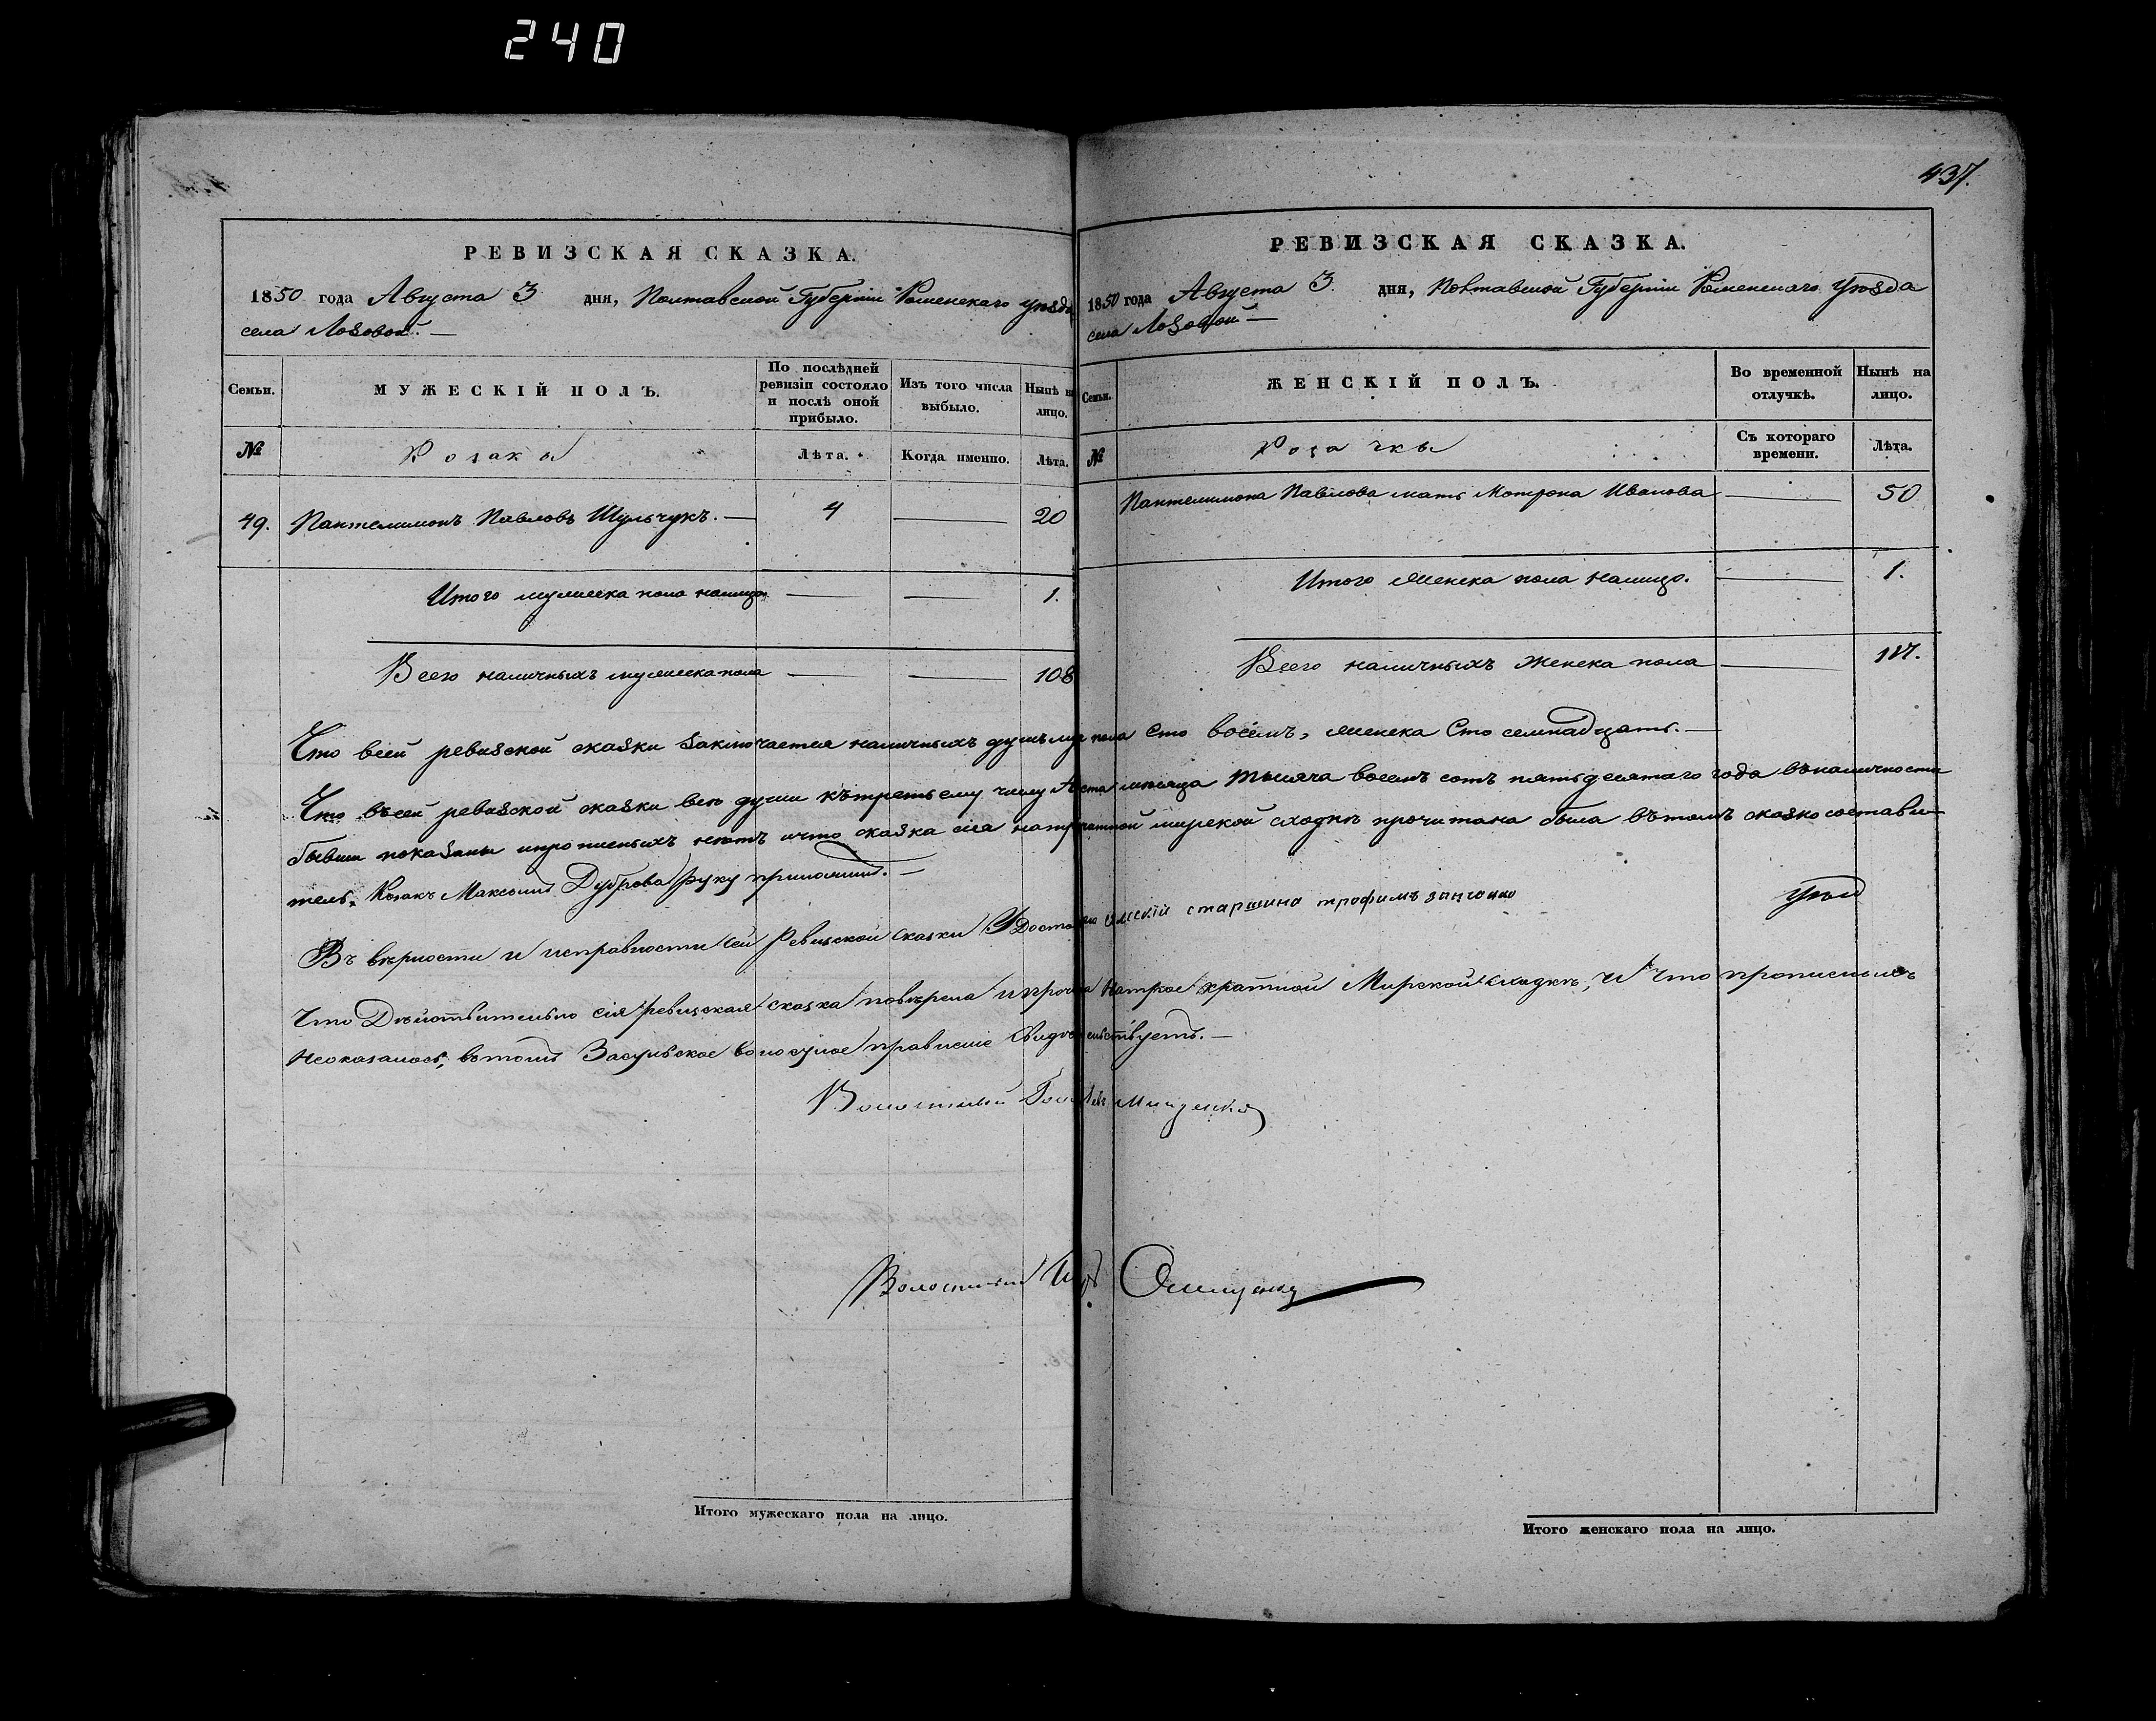 240
437.
РЕВИЗСКАЯ СКАЗКА.
1850 года Августа 3 дня, Полтавской Губерніи Роменскаго уѣзда
села Лозовой. —
Семьи.
МУЖЕСКІЙ ПОЛЪ.
По послѣдней
ревизіи состояло
и послѣ оной
прибыло.
Изъ того числа
выбыло.
Нынѣ на
лицо.
№
Козаки
Лѣта.
Когда именно.
Лѣта.
49. Пантелимонъ Павловъ Шульчукъ. — 4 — 20
Итого мужеска пола налицо — — 1.
Всего наличныхъ мужеска пола — — 108
РЕВИЗСКАЯ СКАЗКА.
1850 года Августа 3 дня, Полтавской Губерніи Роменскаго Уѣзда
села Лозовой —
Семьи.
ЖЕНСКІЙ ПОЛЪ.
Во временной
отлучкѣ.
Нынѣ на
лицо.
№
Козачки
Съ котораго
времени.
Лѣта.
Пантелимона Павлова мать Мотрона Иванова — 50
Итого женска пола налицо. — 1.
Всего наличныхъ женска пола — 117.
Что всей ревизской сказки заключается наличныхъ душъ пола сто восемъ, женска Сто семнадцать. —
Что въ сей ревизской сказки всѣ души къ третьему числу мѣсяца тысяча восемъ сотъ пятьдесятаго года въ наличности
бывши показаны и прописныхъ нѣтъ и что сказка сія мирской сходкѣ прочитана была въ томъ сказко состави-
тель, Козакъ Максимъ Дуброва руку приложилъ. —
Въ вѣрности и исправности сей Ревизской сказки старшина трофимъ
Что Дѣйствительно сія ревизская сказка повѣрена и кратной Мирской сходкѣ, и что прописныхъ
неоказалось, въ томъ Засульское волосное правленіе Свидѣтельствуетъ. —
Волостный
Волостный
Итого мужескаго пола на лицо.
Итого женскаго пола на лицо.